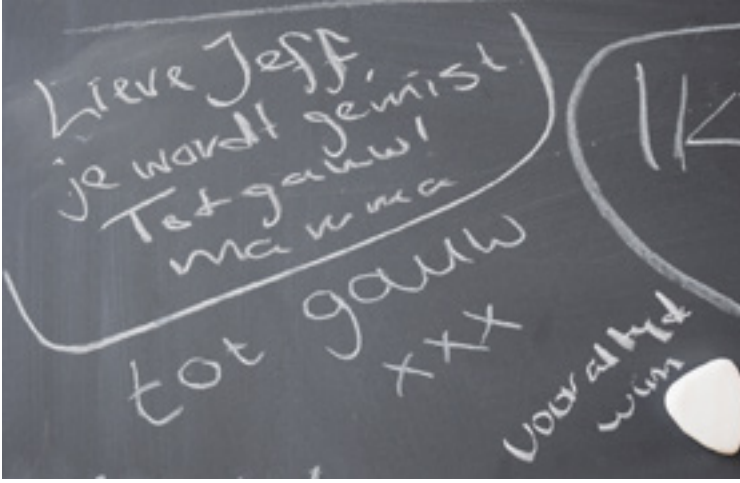 Lieve Jeff,
je wordt gemist
Tot gauw!
mamma
tot gauw
xxx
IK
voor altijd